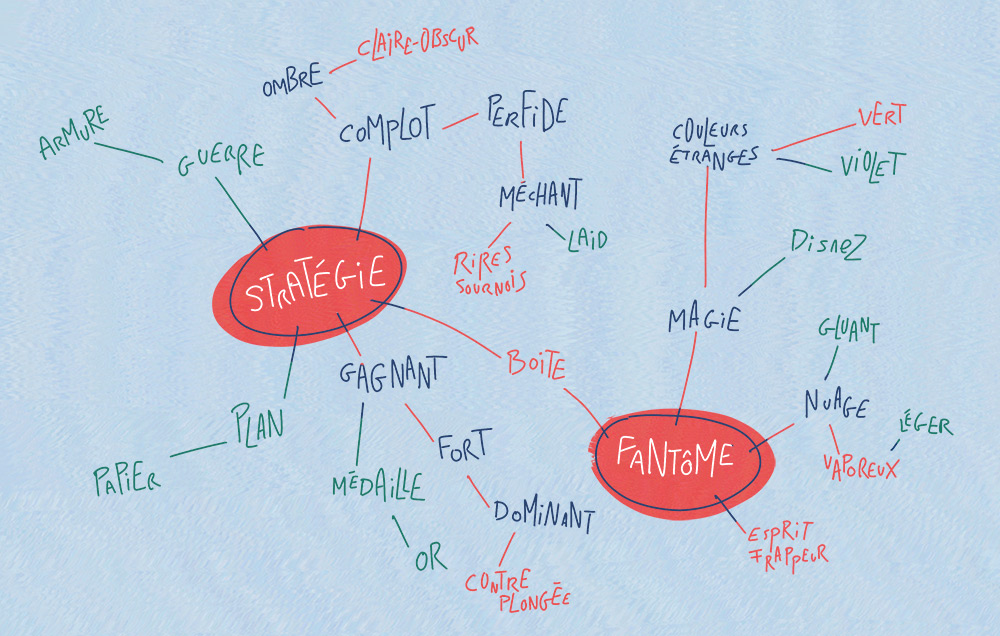 CLAIRE-OBSCUR
OMBRE
COMPLOT
PERFIDE
ARMURE
GUERRE
MÉCHANT
LAID
RIRES
SOURNOIS
COULEURS
ÉTRANGES
VERT
VIOLET
STRATÉGIE
DisnEZ
MAGiE
GAGNANT
BOiTE
GLUANT
NUAGE
LÉGER
VAPOREUX
PLAN
PAPiER
FORT
MÉDAILLE
FANTôME
DOMINANT
OR
CONTRE
PLONGÉE
ESPRIT
FRAPPEUR